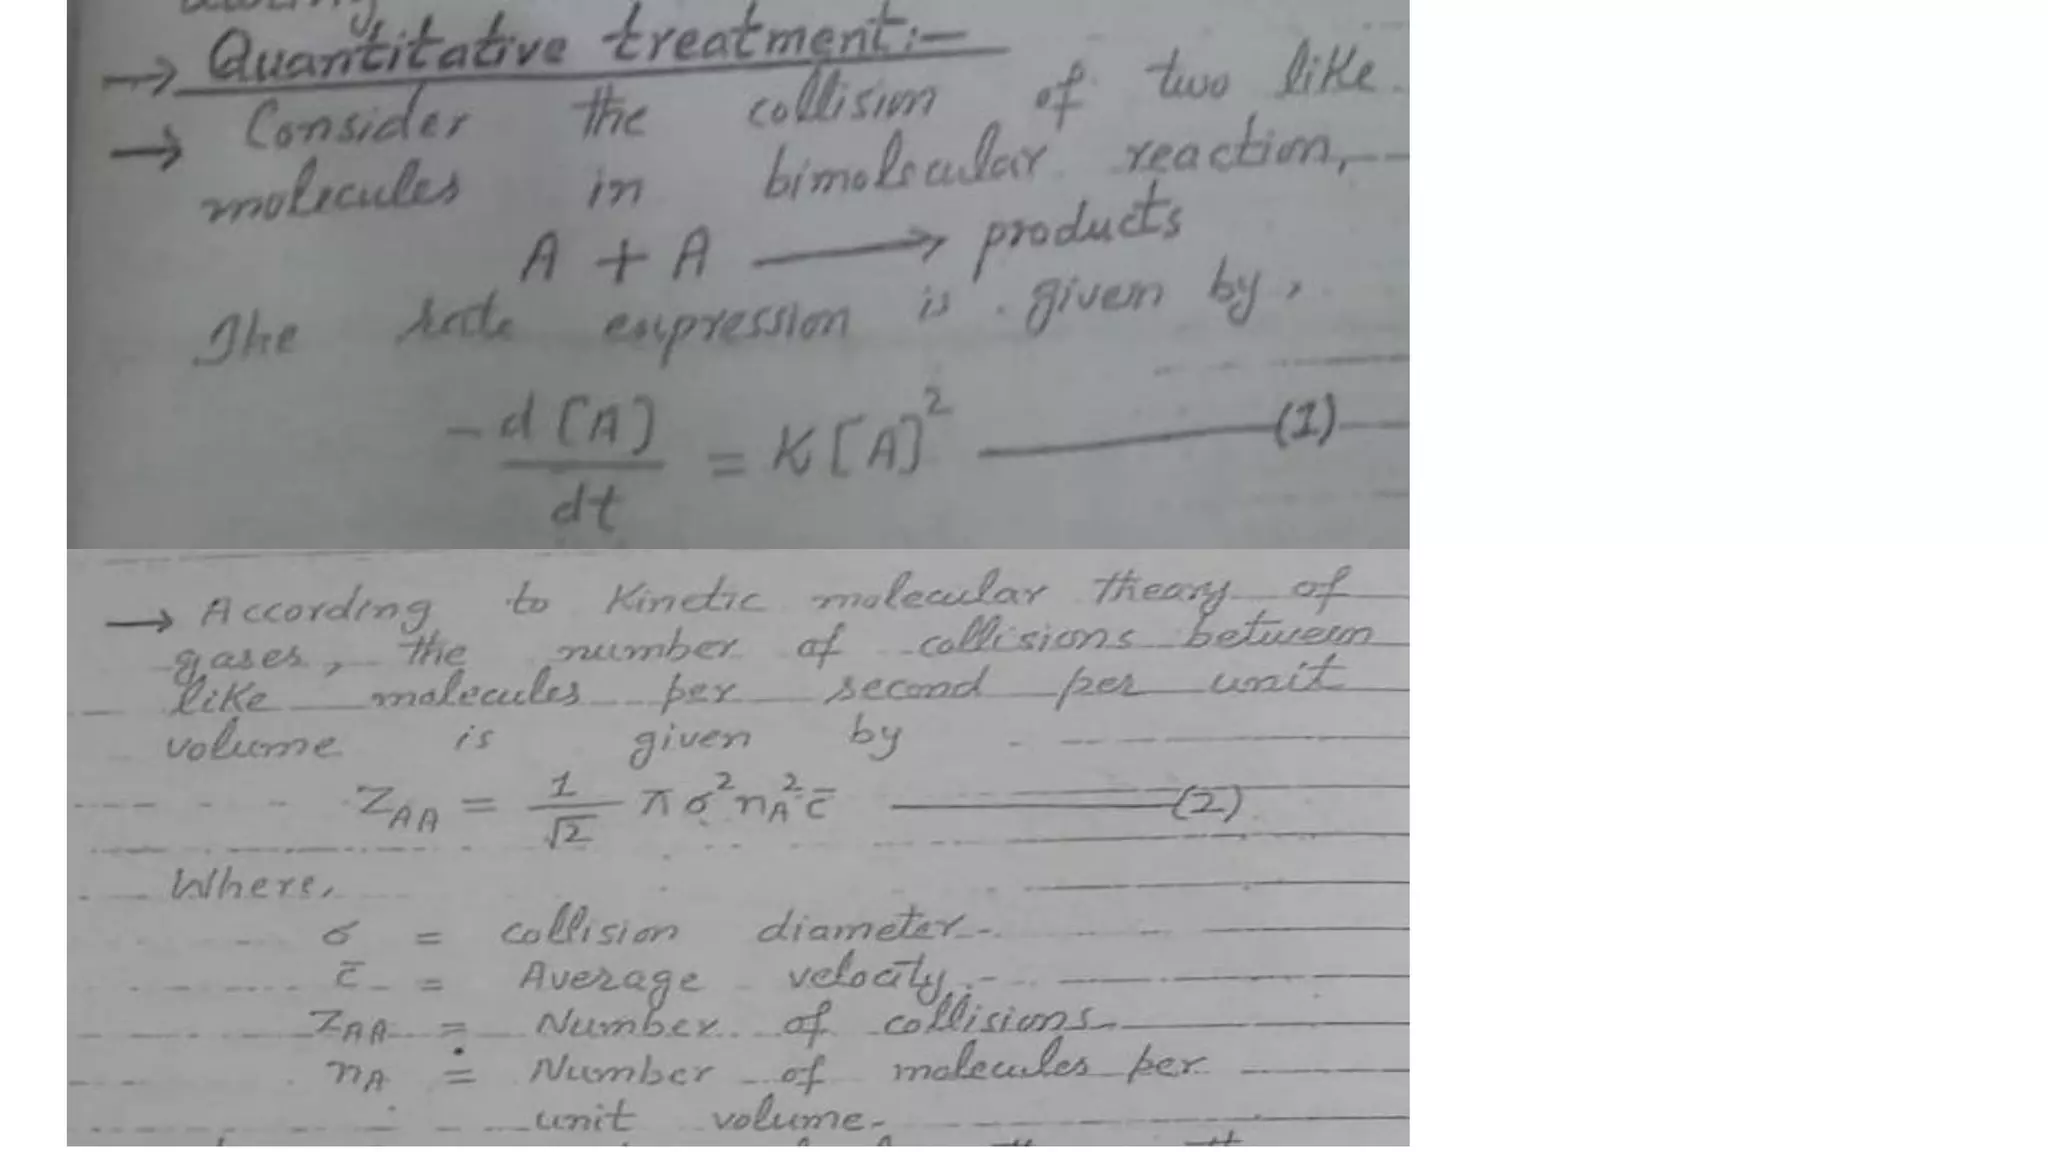 → Quantitative treatment:-
→ Consider the collision of two like
molecules in bimolecular reaction,
A + A ⟶ products
The rate expression is given by,
-d[A]/dt = K[A]² ——— (1)
→ According to Kinetic molecular theory of
gases, the number of collisions between
like molecules per second per unit
volume is given by
Z_AA = 1/√2 π σ² n_A² c̄ ——— (2)
Where,
σ = collision diameter.
c̄ = Average velocity.
Z_AA = Number of collisions.
n_A = Number of molecules per
unit volume.